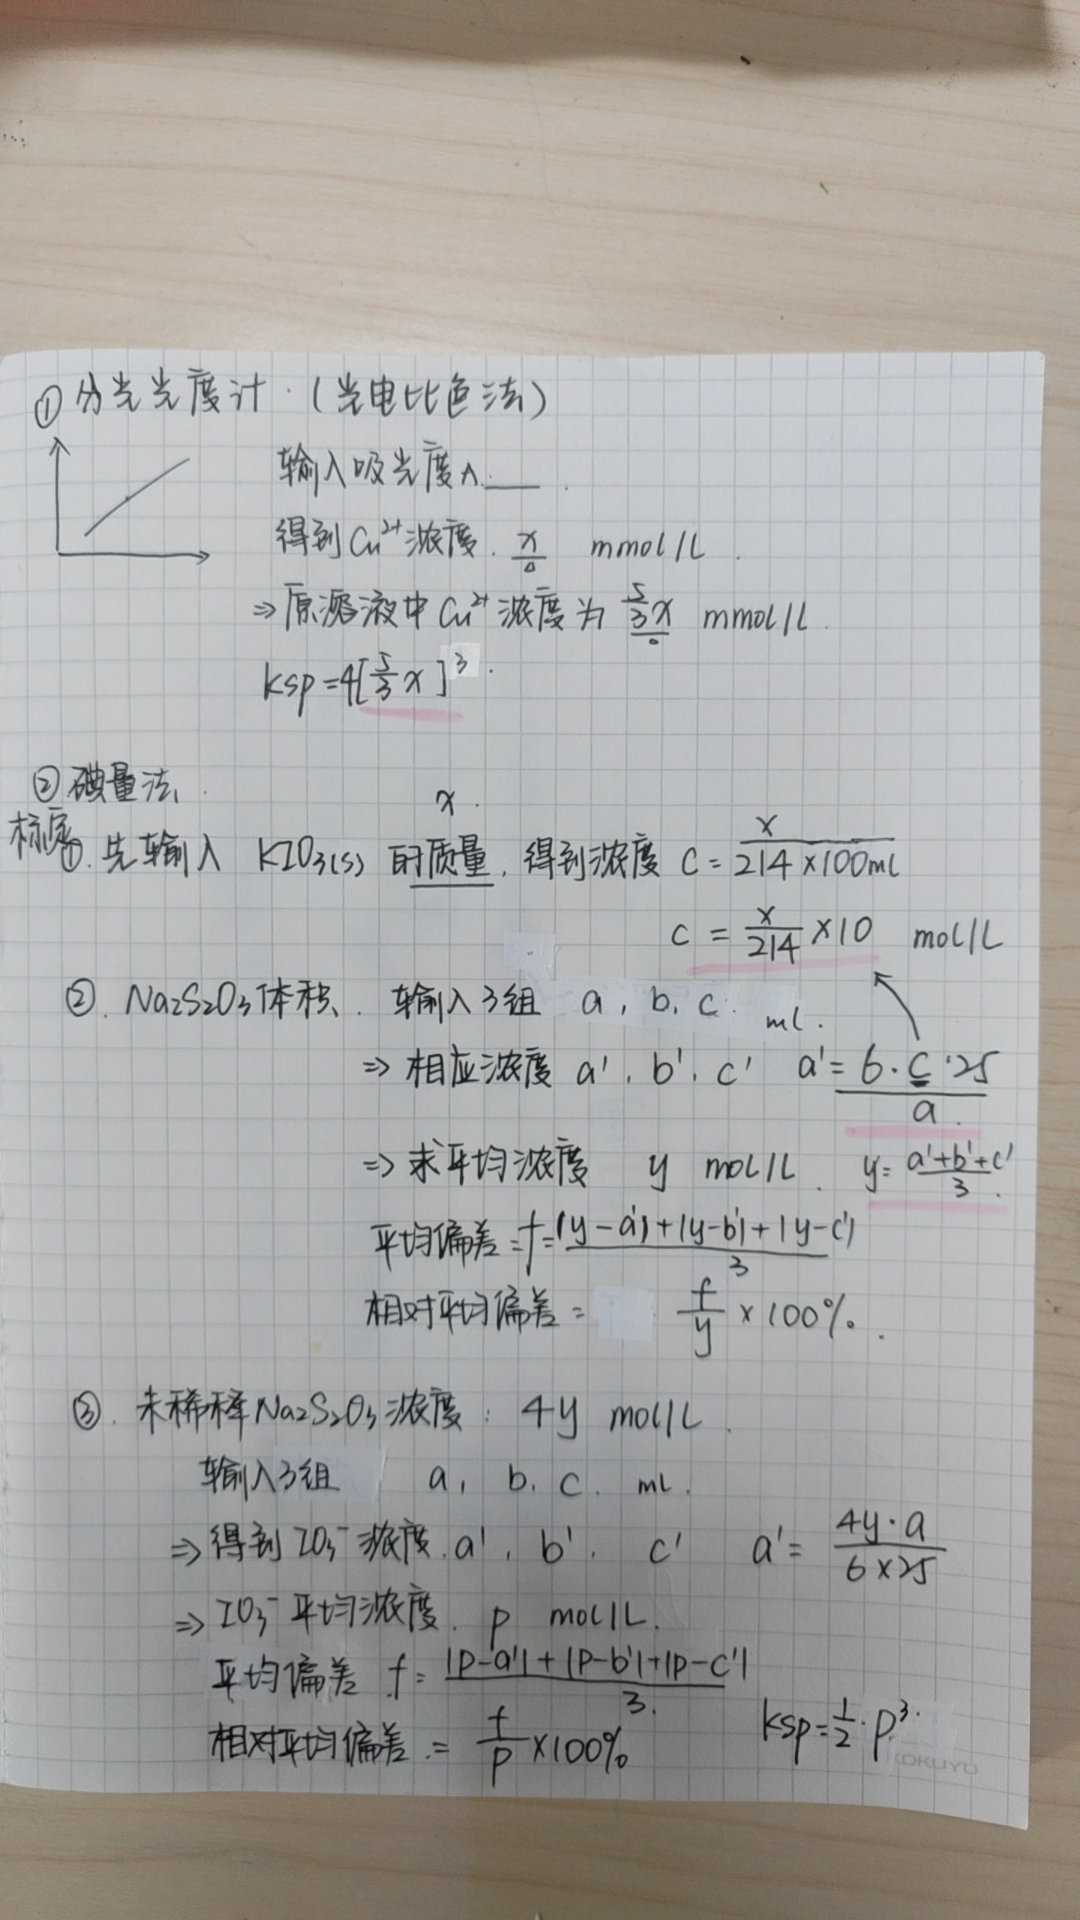 ①分光光度计.（光电比色法）
输入吸光度A.___.
得到Cu²⁺浓度. x mmol/L.
⇒原溶液中Cu²⁺浓度为 5/3x mmol/L.
ksp=4[5/3x]³.
②碘量法.
x.
标定①.先输入 KIO₃(s) 的质量,得到浓度 C = x/(214×100ml)
C = x/214 ×10 mol/L
②. Na₂S₂O₃体积. 输入3组 a, b, c. ml.
⇒相应浓度 a', b', c' a'= 6·C·25/a.
⇒求平均浓度 y mol/L. y= (a'+b'+c')/3.
平均偏差=f=(|y-a'|+|y-b'|+|y-c'|)/3
相对平均偏差= f/y ×100%.
③. 未稀释Na₂S₂O₃浓度: 4y mol/L.
输入3组 a, b, c. ml.
⇒得到IO₃⁻浓度.a', b'. c' a'= 4y·a/(6×25)
⇒IO₃⁻平均浓度. p mol/L.
平均偏差 f= (|p-a'|+|p-b'|+|p-c'|)/3.
ksp=1/2·p³.
相对平均偏差.= f/p×100%
KOKUYO